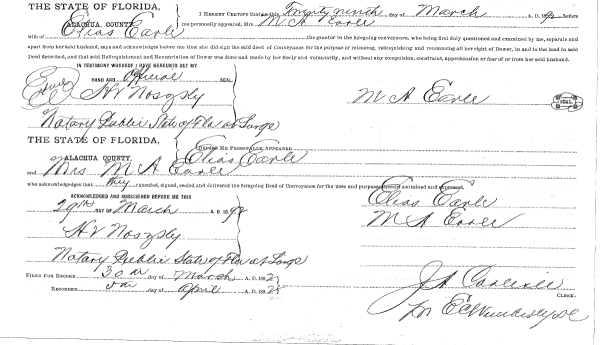 THE STATE OF FLORIDA,
ALACHUA COUNTY.
I HEREBY CERTIFY that on this Twenty ninth day of March A. D. 189 before
me personally appeared, Mrs. M A Earle
wife of Elias Earle the grantor to the foregoing conveyance, who being first duly questioned and examined by me, separate and
apart from her said husband, says and acknowledges before me that she did sign the said deed of Conveyance for the purpose of releasing, relinquishing and renouncing all her right of Dower, in and to the land in said
Deed described, and that said Relinquishment and Renunciation of Dower was done and made by her freely and voluntarily, and without any compulsion, constraint, apprehension or fear of or from her said husband.
IN TESTIMONY WHEREOF I HAVE HEREUNTO SET MY
HAND AND Official SEAL.
M A Earle
SEAL.
Notary Public State of Fla at Large
THE STATE OF FLORIDA,
ALACHUA COUNTY.
BEFORE ME PERSONALLY APPEARED Elias Earle
and Mrs M A Earle
who acknowledges that they executed, signed, sealed and delivered the foregoing Deed of Conveyance for the uses and purposes therein contained and expressed.
ACKNOWLEDGED AND SUBSCRIBED BEFORE ME THIS
Elias Earle
29th DAY OF March A. D. 189
M A Earle
Notary Public State of Fla at Large
FILED FOR RECORD 30 day of March A. D. 189
RECORDED day of April A. D. 189
CLERK.